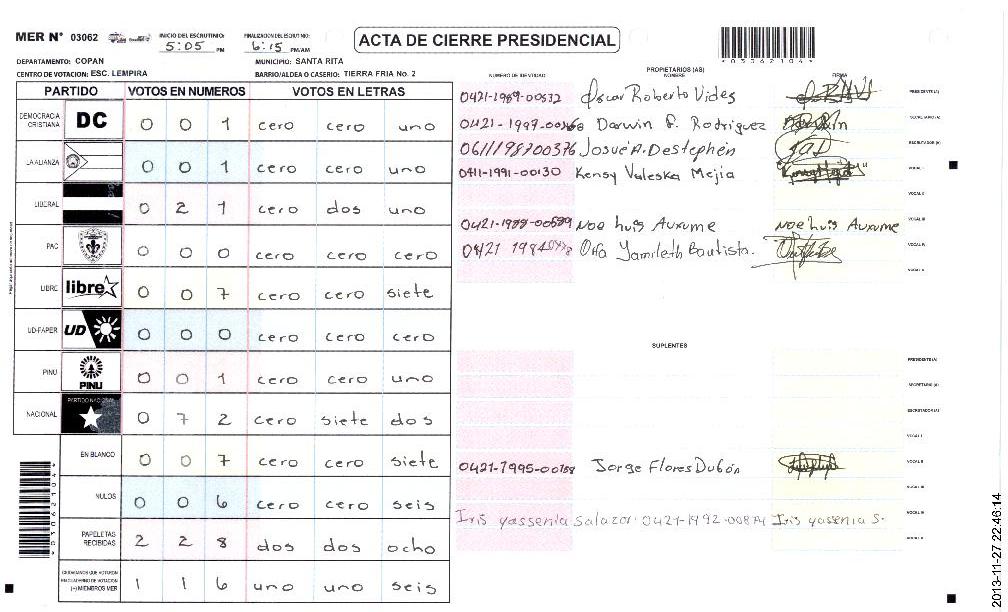 MER N° 03062
INICIO DEL ESCRUTINIO: 5:05 PM
FINALIZACION DEL ESCRUTINIO: 6:15 PM/AM
ACTA DE CIERRE PRESIDENCIAL
*03062104*
DEPARTAMENTO: COPAN
MUNICIPIO: SANTA RITA
CENTRO DE VOTACION: ESC. LEMPIRA
BARRIO/ALDEA O CASERIO: TIERRA FRIA No. 2
PARTIDO VOTOS EN NUMEROS VOTOS EN LETRAS
DEMOCRACIA CRISTIANA DC 0 0 1 cero cero uno
LA ALIANZA 0 0 1 cero cero uno
LIBERAL 0 2 1 cero dos uno
PAC 0 0 0 cero cero cero
LIBRE libre 0 0 7 cero cero siete
UD-FAPER UD 0 0 0 cero cero cero
PINU PINU 0 0 1 cero cero uno
NACIONAL PARTIDO NACIONAL 0 7 2 cero siete dos
EN BLANCO 0 0 7 cero cero siete
NULOS 0 0 6 cero cero seis
PAPELETAS RECIBIDAS 2 2 8 dos dos ocho
CIUDADANOS QUE VOTARON EN CUADERNO DE VOTACION (+) MIEMBROS MER 1 1 6 uno uno seis
*03062104*
PROPIETARIOS (AS)
NUMERO DE IDENTIDAD NOMBRE FIRMA
0421-1989-00532 Oscar Roberto Vides PRESIDENTE (A)
Darwin F. Rodriguez SECRETARIO (A)
0611198700376 Josué A. Destephén ESCRUTADOR (A)
0411-1991-00130 Kensy Valeska Mejia VOCAL I
VOCAL II
0421-1988-00589 Noe Luis Auxume Noe Luis Auxume VOCAL III
Yamileth Bautista. VOCAL IV
VOCAL V
SUPLENTES
PRESIDENTE (A)
SECRETARIO (A)
ESCRUTADOR (A)
VOCAL I
Jorge Flores Dubón VOCAL II
VOCAL III
Iris yassenia Salazar 0421-1992-00874 Iris yassenia S. VOCAL IV
VOCAL V
2013-11-27 22:46:14